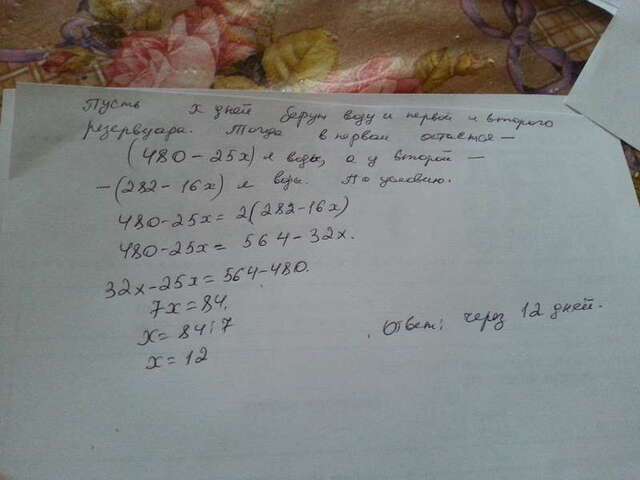 Пусть х дней берут воду и первой и второго
резервуара. Тогда в первом остается —
(480 - 25х) л воды, а у второй —
- (282 - 16х) л воды. По условию.
480 - 25х = 2(282 - 16х)
480 - 25х = 564 - 32х.
32х - 25х = 564 - 480.
7х = 84.
х = 84 : 7
х = 12
Ответ: через 12 дней.